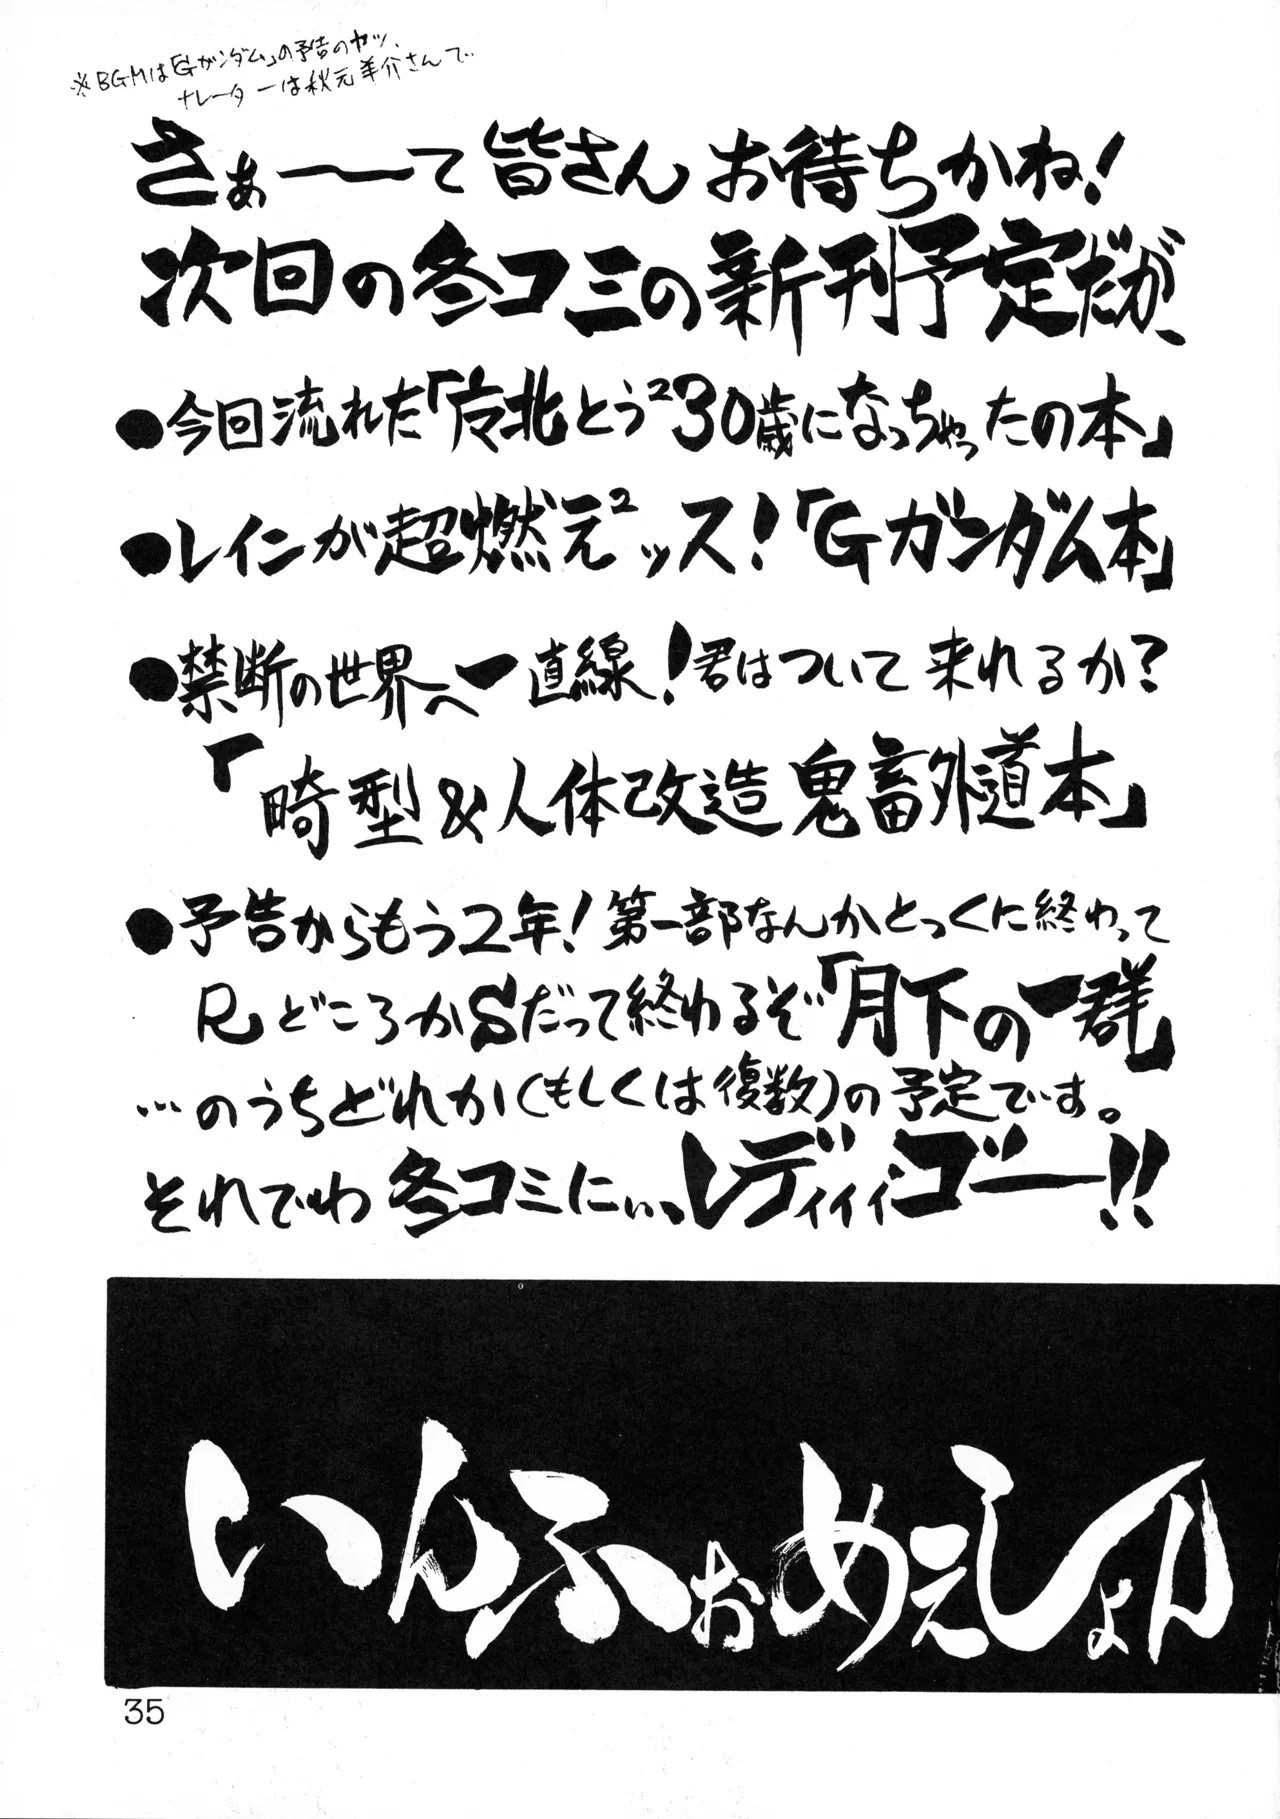 ※BGMは「Gガンダム」の予告のヤツ、
ナレーターは秋元羊介さんで…
さぁ〜〜て皆さんお待ちかね!
次回の冬コミの新刊予定だが、
●今回流れた「広北とう²30歳になっちゃったの本」
●レインが超燃え²ッス!「Gガンダム本」
●禁断の世界へ一直線!君はついて来れるか?
「畸型&人体改造鬼畜外道本」
●予告からもう2年!第一部なんかとっくに終わって
RどころかSだって終わるぞ「月下の一群」
…のうちどれか(もしくは復数)の予定です。
それでわ冬コミにぃぃっレディィィィゴー!!
いんふぉめえしょん
35